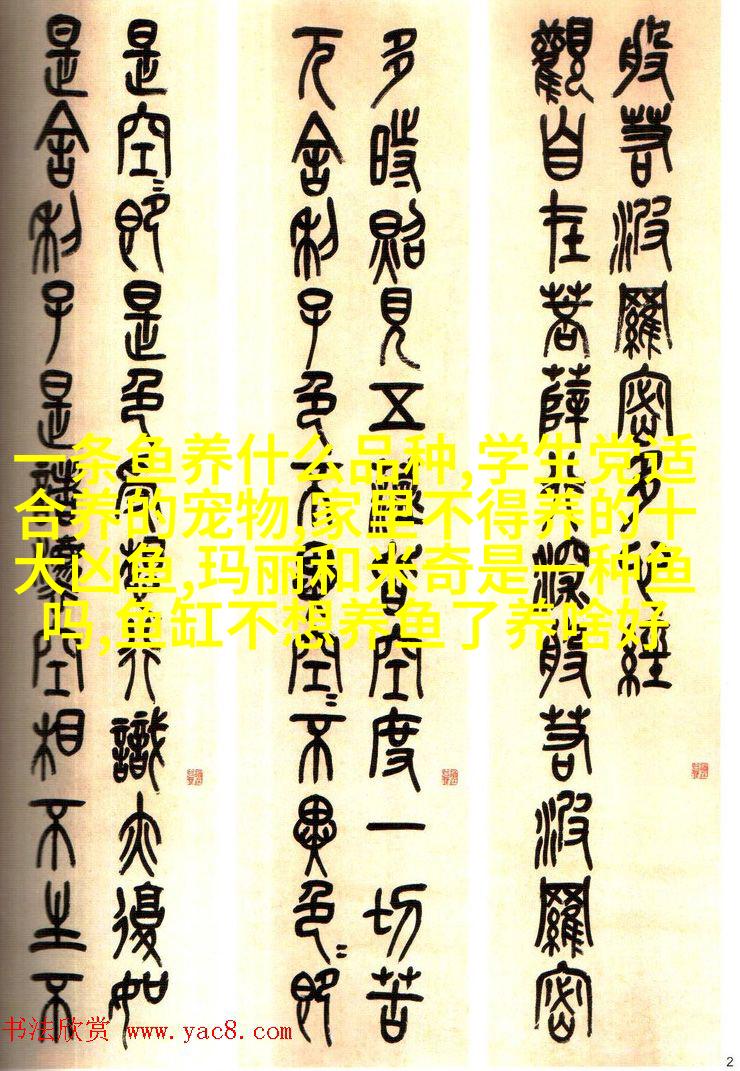 般若波羅密多心經
觀自在菩薩行深般若波羅密
多時照見五蘊皆空度一切苦
厄舍利子色不異空〻不異色〻即
是空〻即是色受想行識亦復如
是舍利子是諸法空相不生不
一条鱼养什么品种,学生党适
合养的宠物,家里不得养的十
大凶鱼,玛丽和米奇是一种鱼
吗,鱼缸不想养鱼了养啥好
书法欣赏 www.yac8.com
2